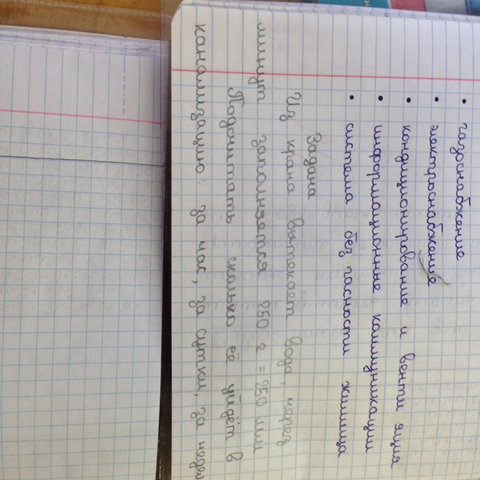 • газоснабжение
• электроснабжение
• кондиционирование и венти яция
• информационные коммуникации
• система без гасности жилища
Задача
Из крана вытекает вода, через
минут заполняется 250 г = 250 мл
Подсчитать сколько её уйдёт в
канализацию: за час, за сутки, за недел